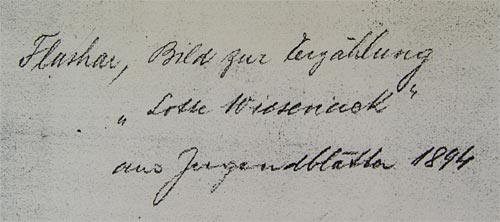 Flashar, Bild zur Erzählung
„Lotte Wieseneck“
aus Jugendblätter 1894